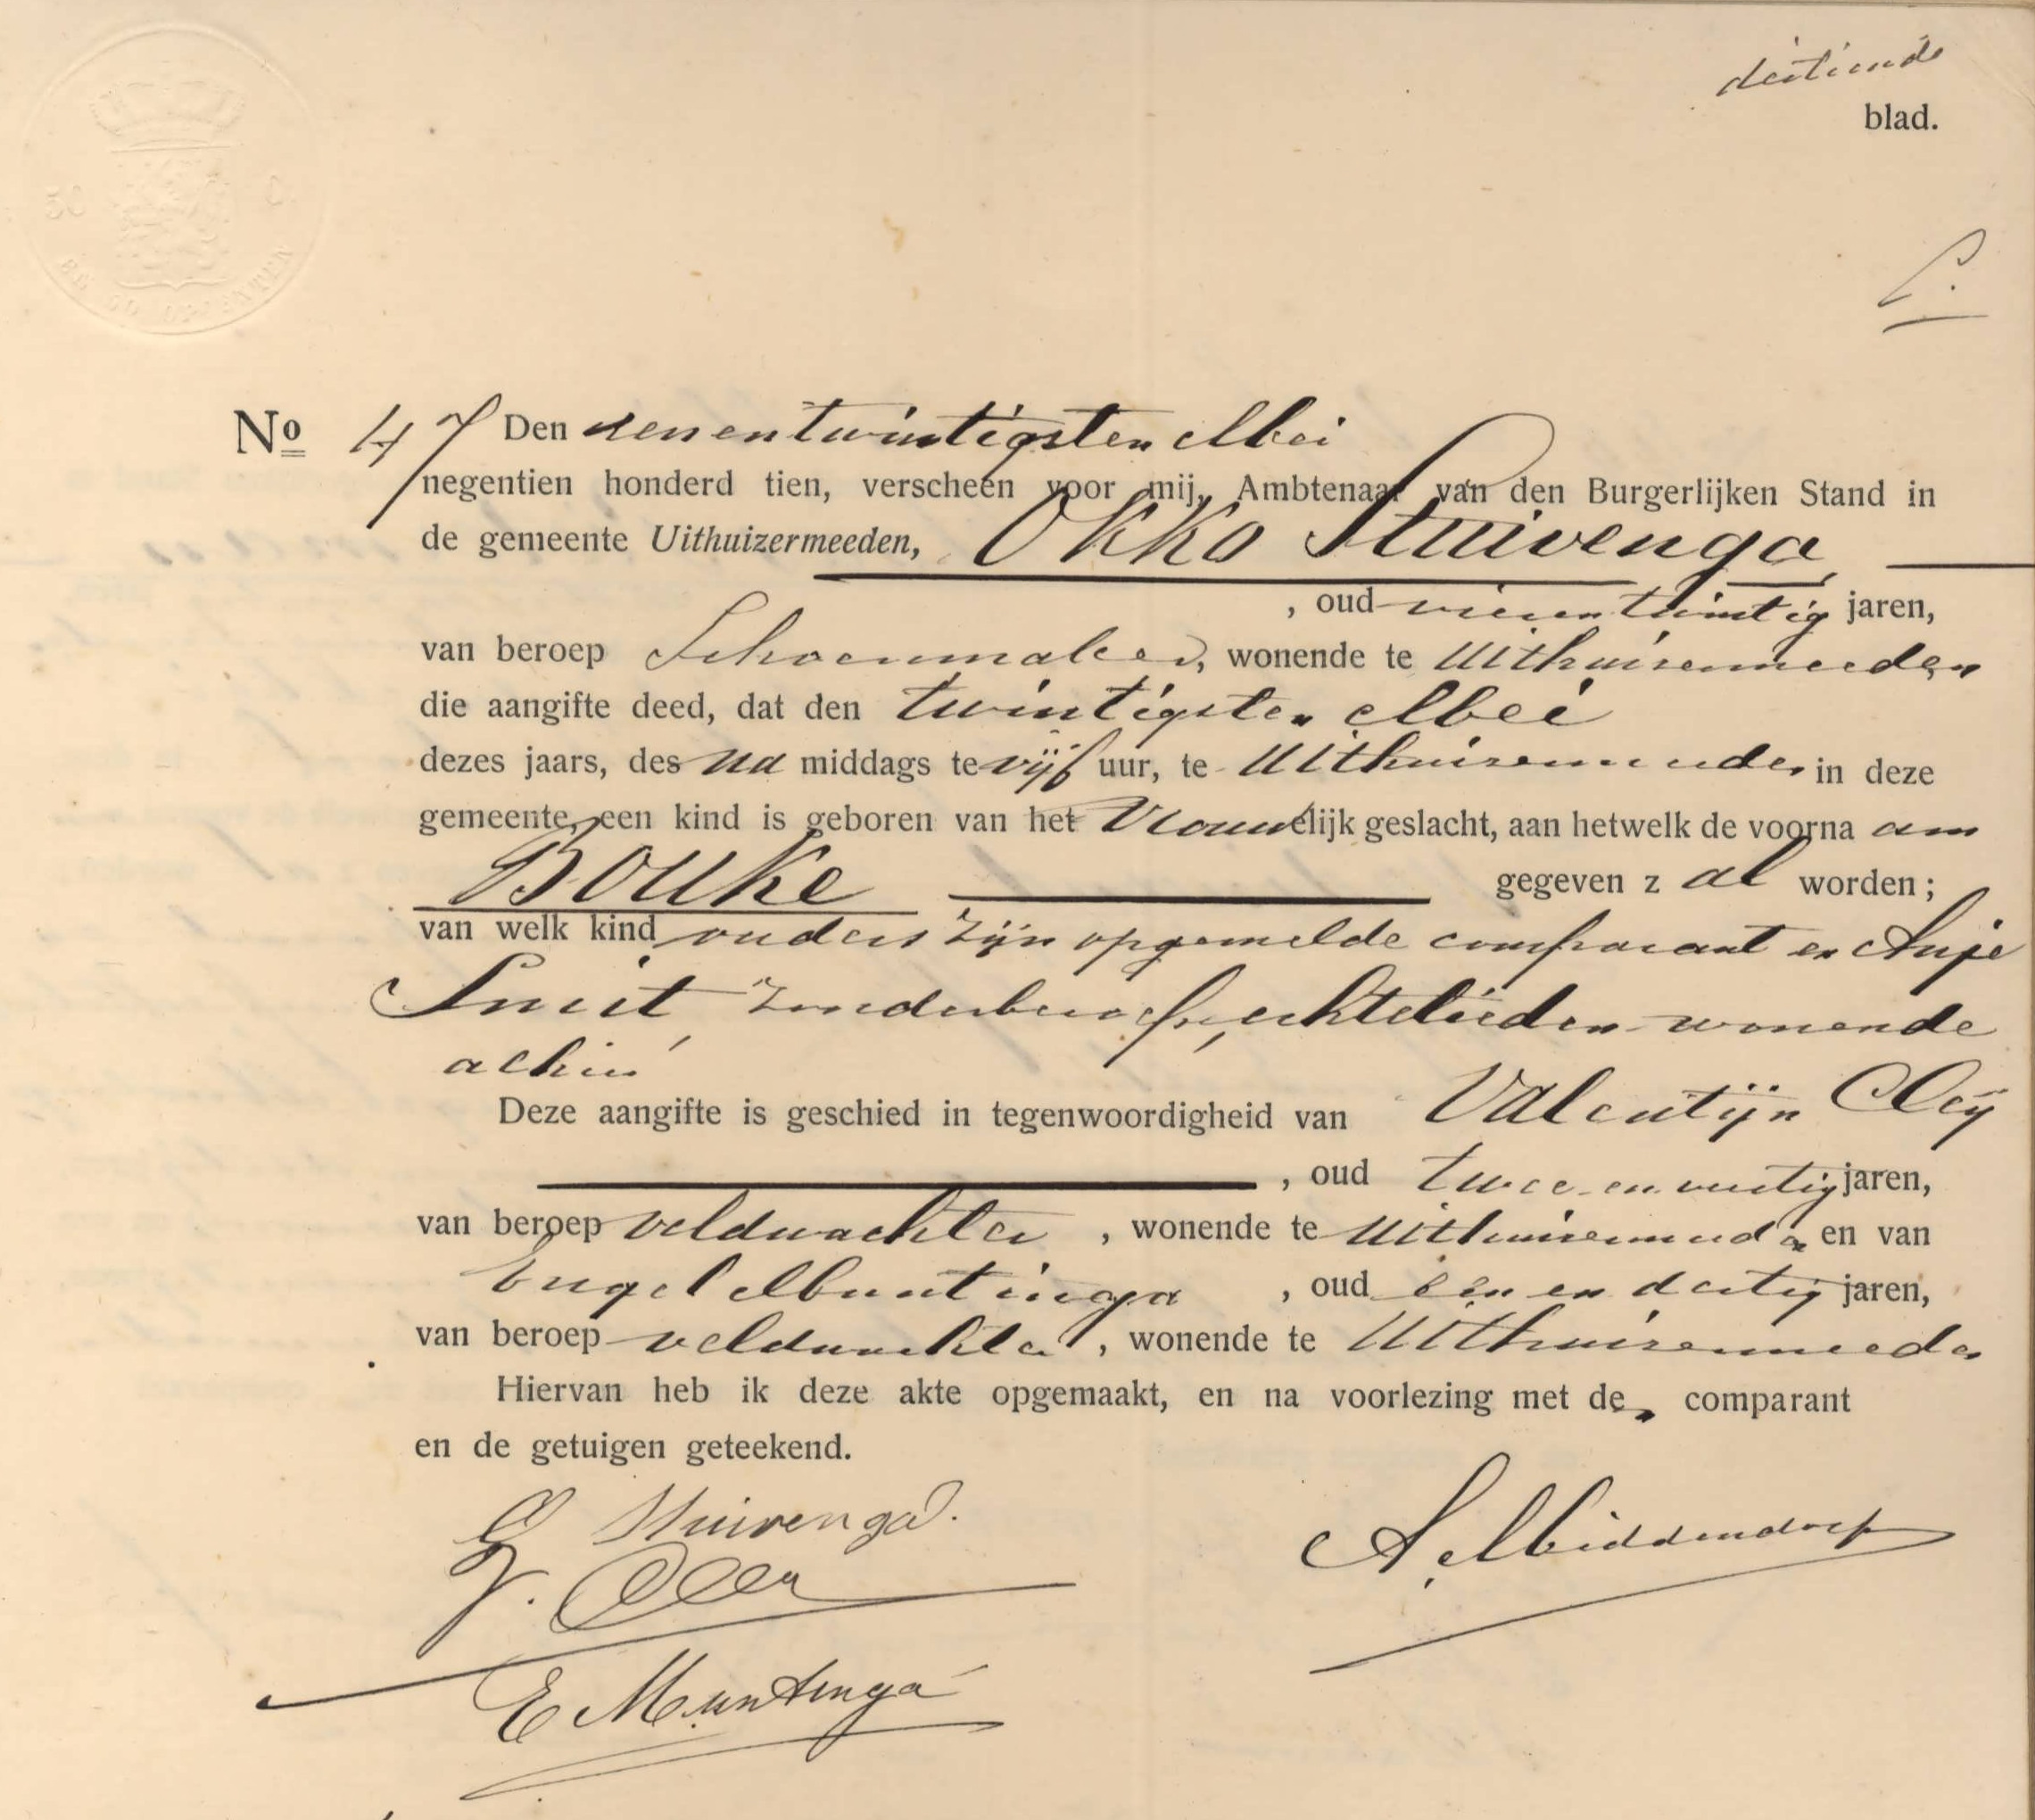 dertiende
blad.
No 47 Den eenentwintigsten Mei
negentien honderd tien, verscheen voor mij, Ambtenaar van den Burgerlijken Stand in
de gemeente Uithuizermeeden, Okko Stuivenga
, oud vierentwintig jaren,
van beroep Schoenmaker, wonende te Uithuizermeeden
die aangifte deed, dat den twintigsten Mei
dezes jaars, des na middags te vijf uur, te Uithuizermeeden in deze
gemeente, een kind is geboren van het Vrouwelijk geslacht, aan hetwelk de voorna am
Bouke gegeven z al worden;
van welk kind ouders zijn opgemelde comparant en Anje
Smit, zonder beroep, echtelieden wonende
alhier
Deze aangifte is geschied in tegenwoordigheid van Valentijn
, oud twee en veertig jaren,
van beroep veldwachter, wonende te Uithuizermeeden en van
Engel Muntinga, oud een en dertig jaren,
van beroep veldwachter, wonende te Uithuizermeeden
Hiervan heb ik deze akte opgemaakt, en na voorlezing met den comparant
en de getuigen geteekend.
O Stuivenga.
A. Middendorp
V.
E Muntinga